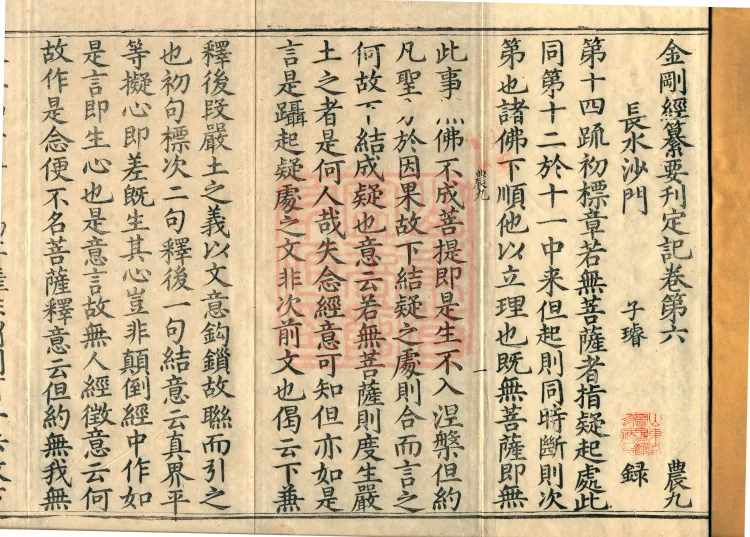 金剛經纂要刊定記卷第六 農九
長水沙門 子璿 録
第十四䟽初標章若無菩薩者指疑起處此
同第十二於十一中来但起則同時斷則次
第也諸佛下順他以立理也既無菩薩即無
農九 一
此事 佛不成菩提即是生不入涅槃但約
凡聖 於因果故下結疑之處則合而言之
何故下結成疑也意云若無菩薩則度生嚴
土之者是何人哉失念經意可知但亦如是
言是躡起疑處之文非次前文也偈云下兼
釋後段嚴土之義以文意鈎鎖故聮而引之
也初句標次二句釋後一句結意云真界平
等擬心即差既生其心豈非顛倒經中作如
是言即生心也是意言故無人經徵意云何
故作是念便不名菩薩釋意云但約無我無